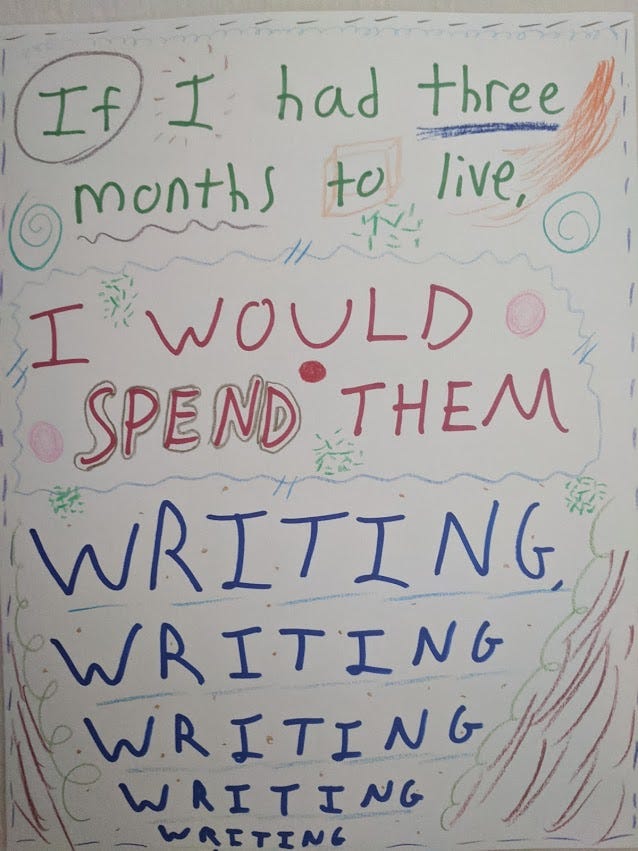 If I had three
months to live,
I WOULD
SPEND THEM
WRITING,
WRITING
WRITING
WRITING
WRITING